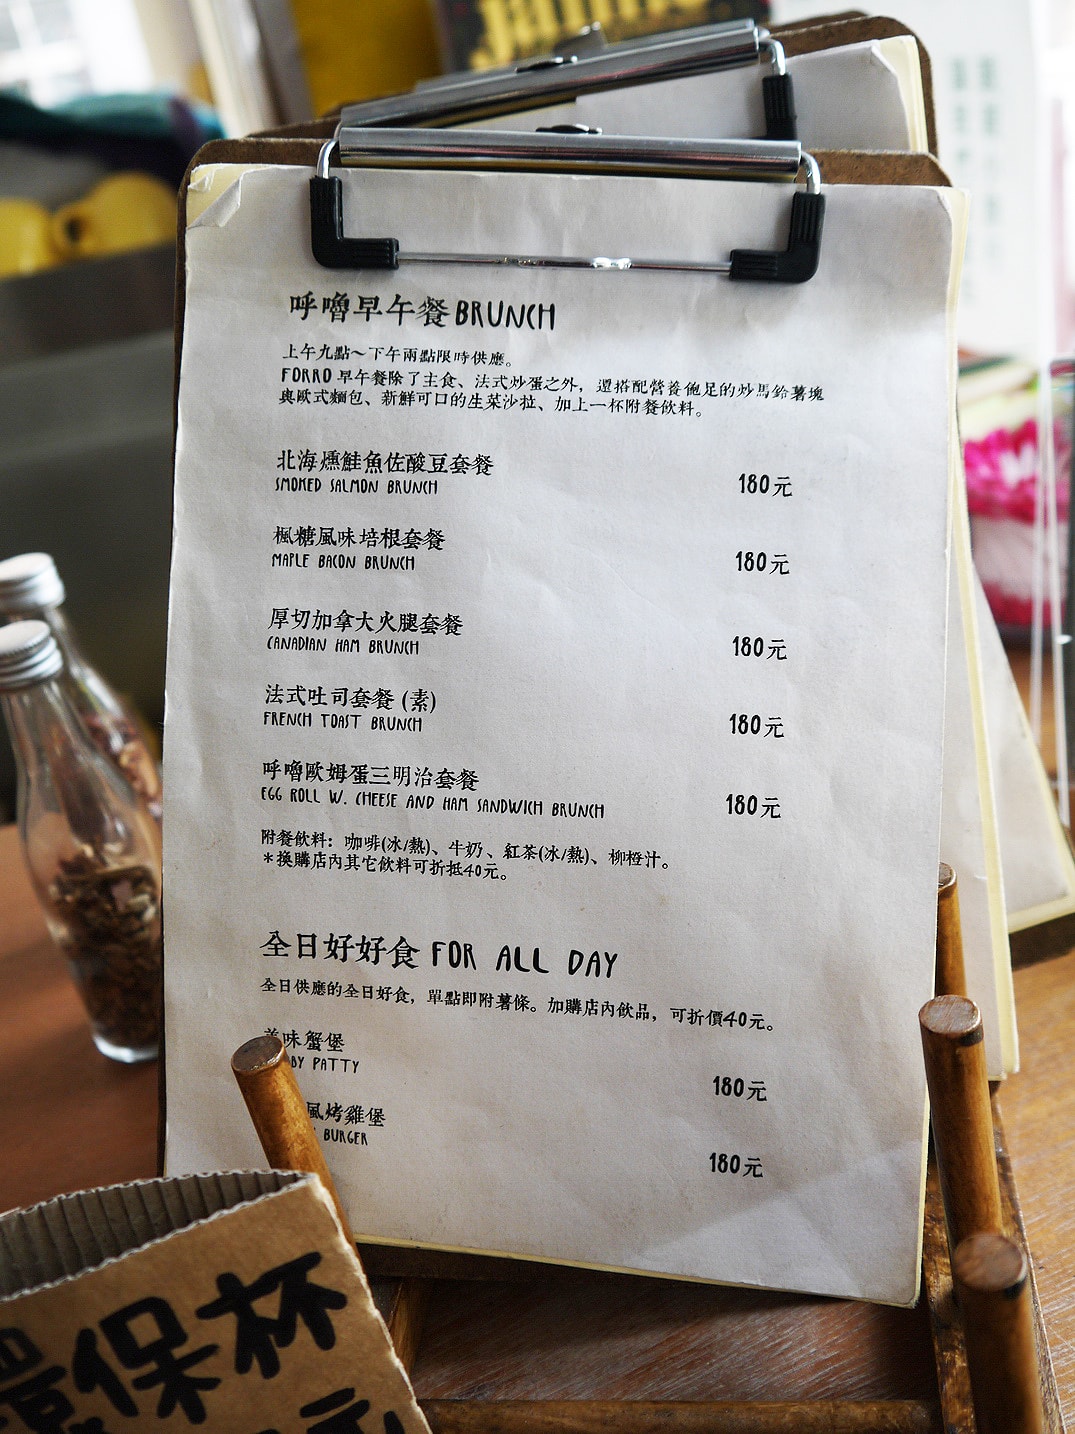 呼嚕早午餐BRUNCH
上午九點~下午兩點限時供應。
FORRO 早午餐除了主食、法式炒蛋之外，還搭配營養飽足的炒馬鈴薯塊
與歐式麵包、新鮮可口的生菜沙拉、加上一杯附餐飲料。
北海燻鮭魚佐酸豆套餐
SMOKED SALMON BRUNCH
180元
楓糖風味培根套餐
MAPLE BACON BRUNCH
180元
厚切加拿大火腿套餐
CANADIAN HAM BRUNCH
180元
法式吐司套餐 (素)
FRENCH TOAST BRUNCH
180元
呼嚕歐姆蛋三明治套餐
EGG ROLL W. CHEESE AND HAM SANDWICH BRUNCH
180元
附餐飲料：咖啡(冰/熱)、牛奶、紅茶(冰/熱)、柳橙汁。
*換購店內其它飲料可折抵40元。
全日好好食 FOR ALL DAY
全日供應的全日好食，單點即附薯條。加購店內飲品，可折價40元。
美味蟹堡
BY PATTY
180元
風烤雞堡
BURGER
180元
環保杯